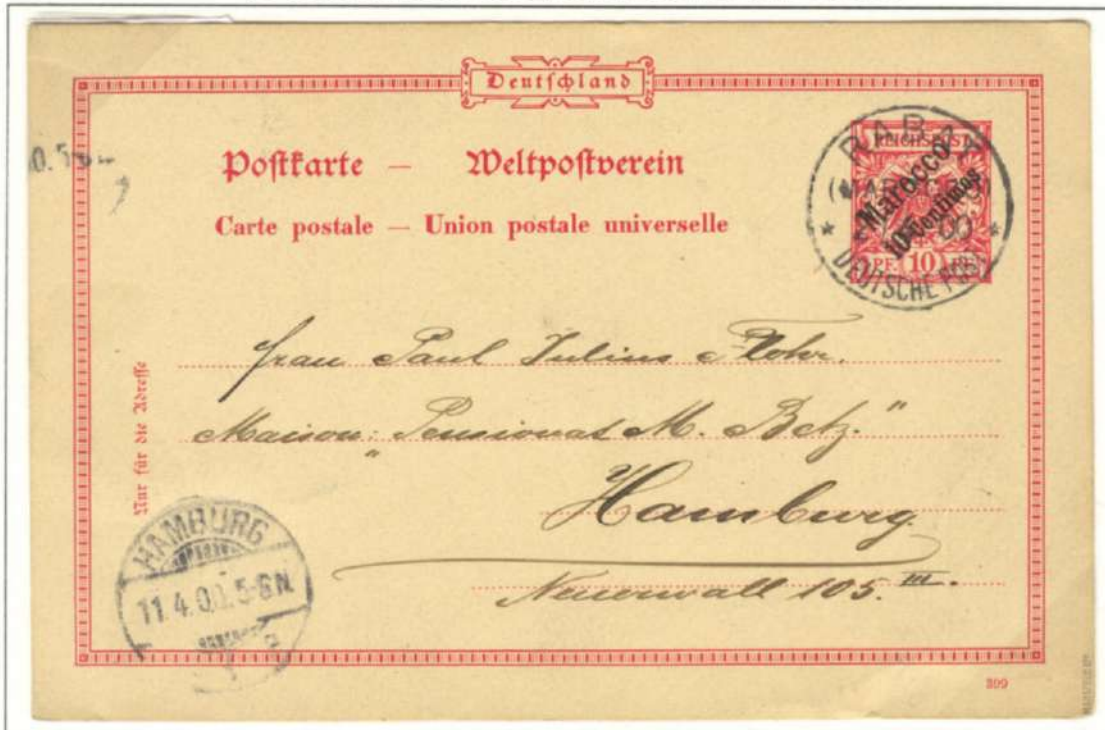 Deutschland
Postkarte — Weltpostverein
Carte postale — Union postale universelle
RABAT
(MAROCCO)
DEUTSCHE POST
REICHSPOST
Marocco
10 Centimos
PF. 10 PF.
Nur für die Adresse
Frau Paul Julius Flohr.
Maison: „Pensionat M. Betz."
Hamburg
Neuerwall 105. III.
HAMBURG
11.4.00. 5-6N
399